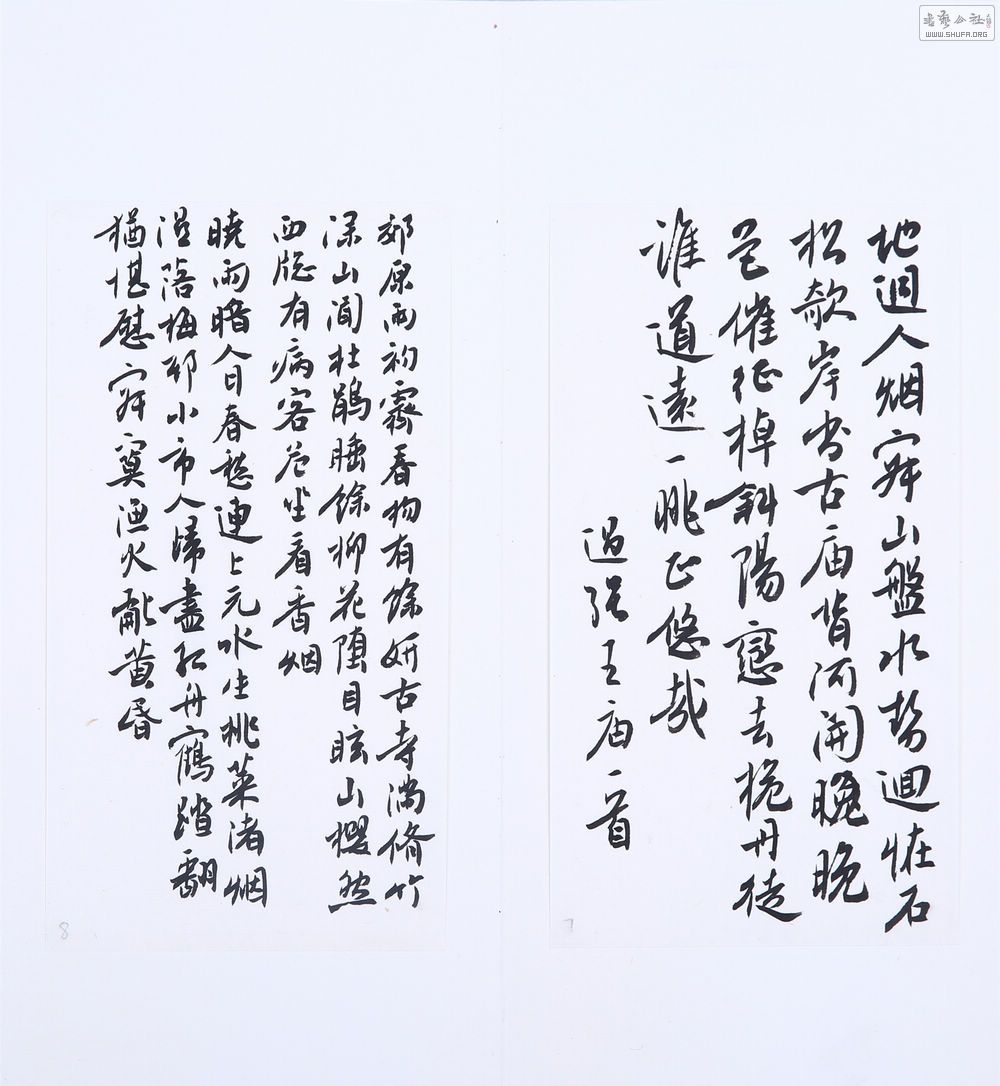 地迥人烟寂山盤水勢迴怪石
松欹岸出古庙背河開晚晚
色催征棹斜陽戀去桅丹徒
誰道遠一眺正悠哉
過張王庙一首
郊原雨初霽春物有餘妍古寺滿脩竹
深山聞杜鵑睡餘柳花墮目眩山櫻然
西牕有病客危坐看香烟
曉雨暗人日春愁連上元水生桃菜渚烟
濕落梅邨小市人歸盡孤舟鶴踏翻
猶堪慰寂寞漁火亂黄昏
7
8
書藝公社
WWW.SHUFA.ORG